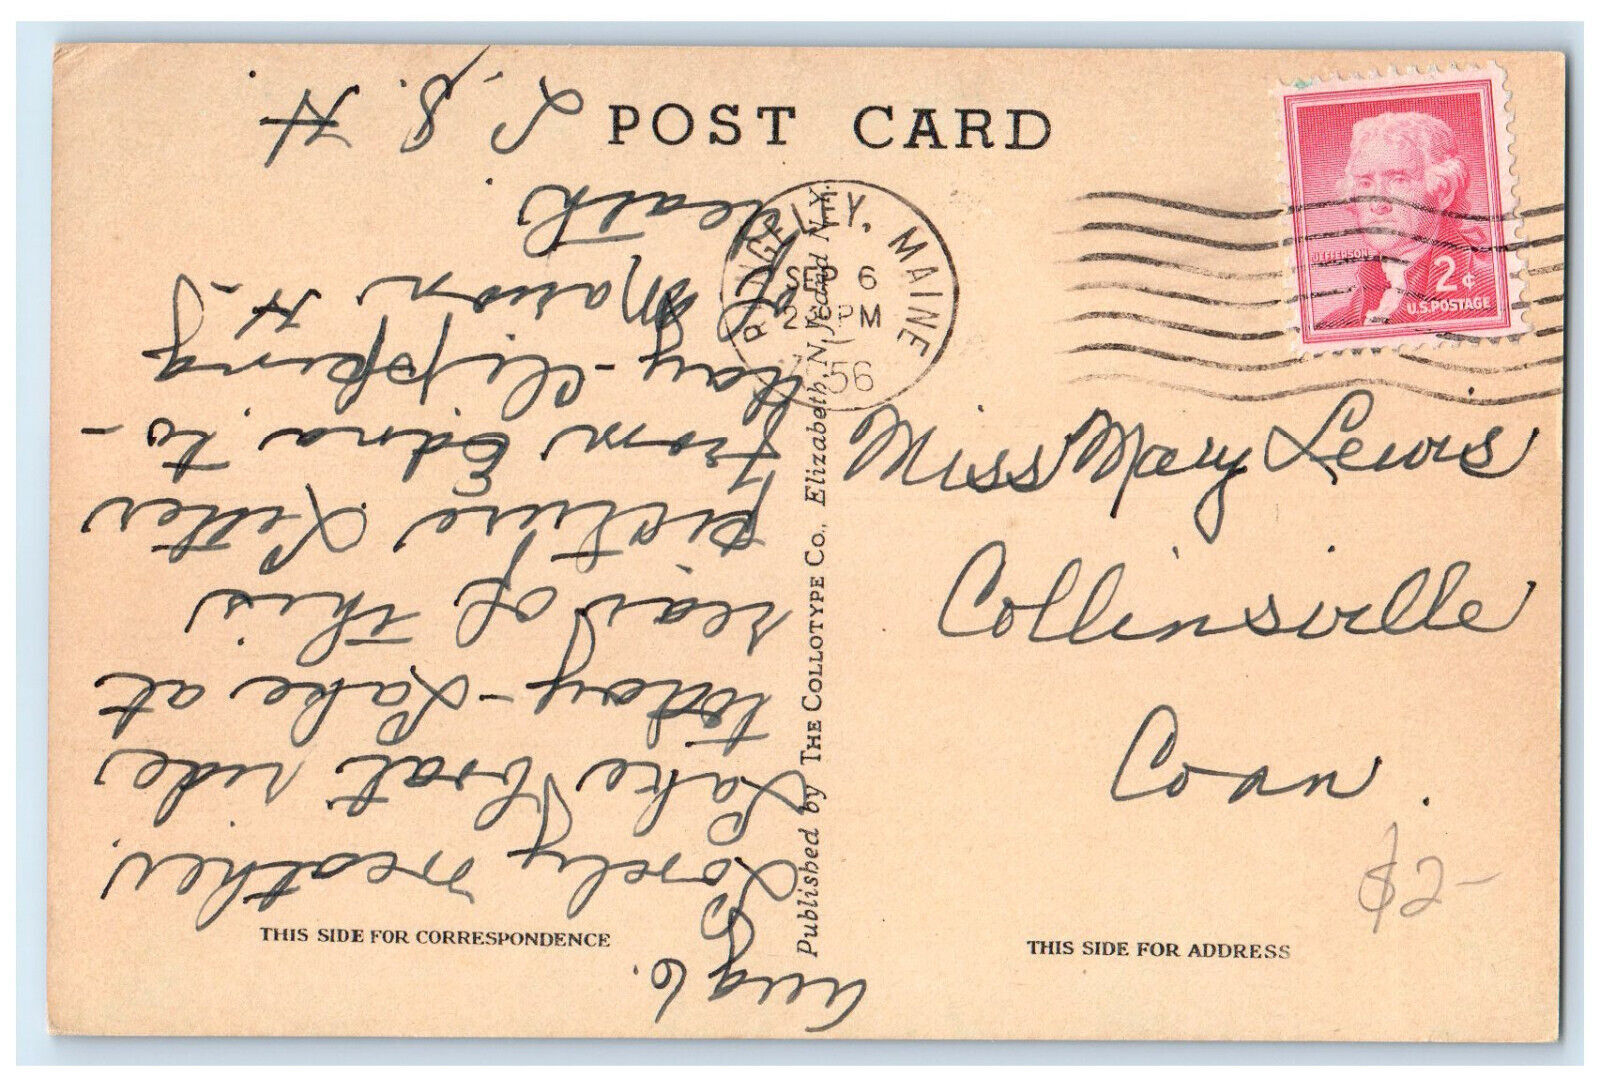 POST CARD
RANGELEY, MAINE
SEP 6
2 PM
1956
JEFFERSON
2¢
U.S. POSTAGE
Miss Mary Lewis
Collinsville
Conn.
$2-
THIS SIDE FOR ADDRESS
THIS SIDE FOR CORRESPONDENCE
Published by THE COLLOTYPE CO., Elizabeth, N.J. and N.Y.
Aug 6.
Lovely weather.
Lake boat ride
today - Lake at
rear of this
picture. Letter
from Edna to-
day - clipping
of Marion H-'s
death.
L. S. H.